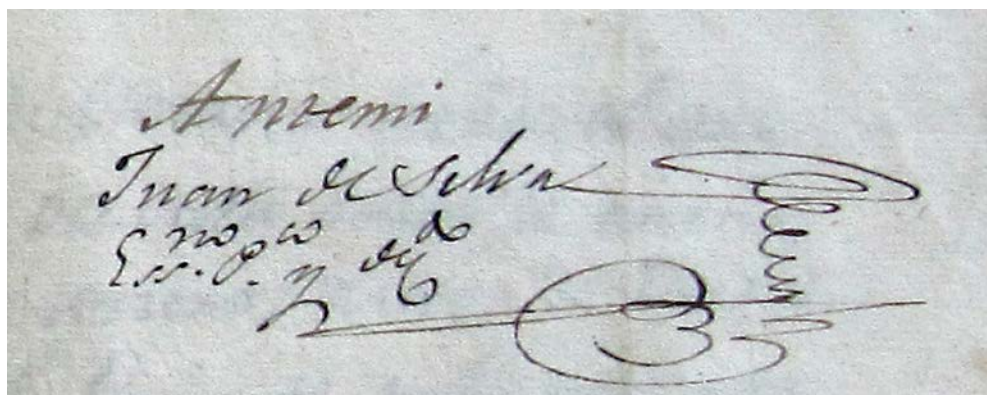 Antemi
Juan de Silva
Ess.no P.co y de C.do